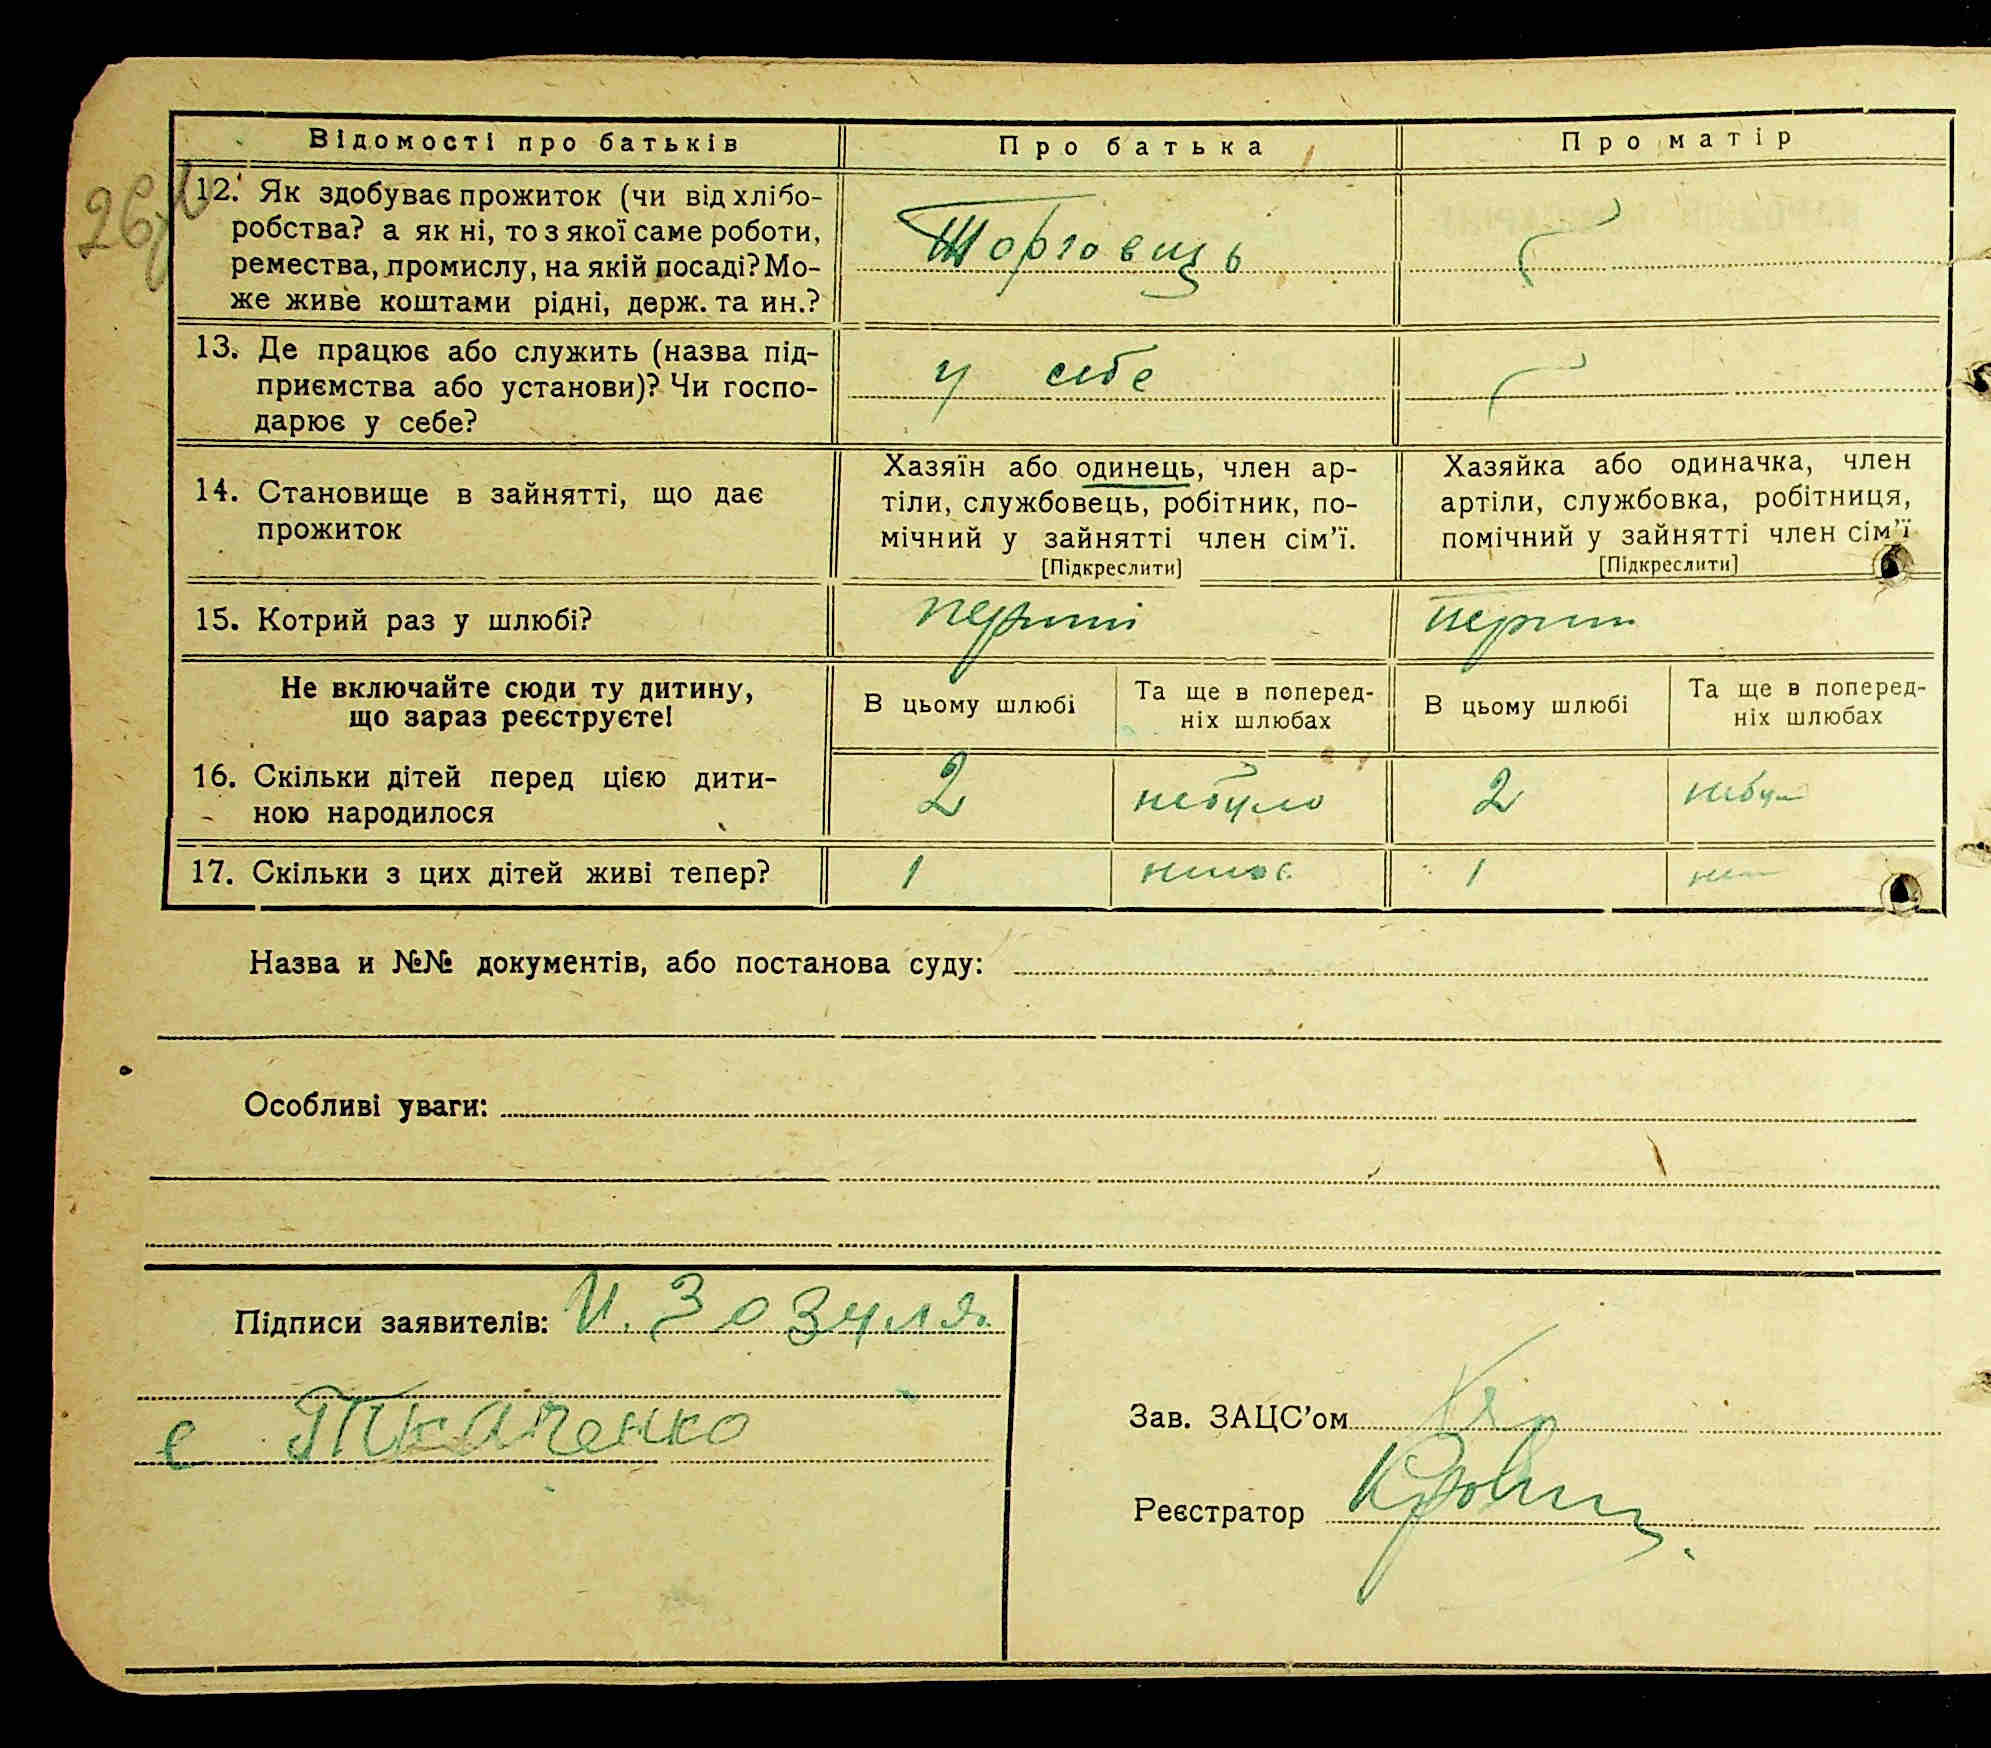 Відомості про батьків
Про батька
Про матір
12. Як здобуває прожиток (чи від хлібо-
робства? а як ні, то з якої саме роботи,
ремества, промислу, на якій посаді? Мо-
же живе коштами рідні, держ. та ин.?
Торговець
13. Де працює або служить (назва під-
приємства або установи)? Чи госпо-
дарює у себе?
у себе
14. Становище в зайнятті, що дає
прожиток
Хазяїн або одинець, член ар-
тіли, службовець, робітник, по-
мічний у зайнятті член сім'ї.
[Підкреслити]
Хазяйка або одиначка, член
артіли, службовка, робітниця,
помічний у зайнятті член сім'ї
[Підкреслити]
15. Котрий раз у шлюбі?
перший
Не включайте сюди ту дитину,
що зараз реєструєте!
В цьому шлюбі
Та ще в поперед-
ніх шлюбах
В цьому шлюбі
Та ще в поперед-
ніх шлюбах
16. Скільки дітей перед цією дити-
ною народилося
2
небуло
2
17. Скільки з цих дітей живі тепер?
1
1
Назва и №№ документів, або постанова суду:
Особливі уваги:
Підписи заявителів: И. Зозуля
є Ткаченко
Зав. ЗАЦС'ом
Реєстратор